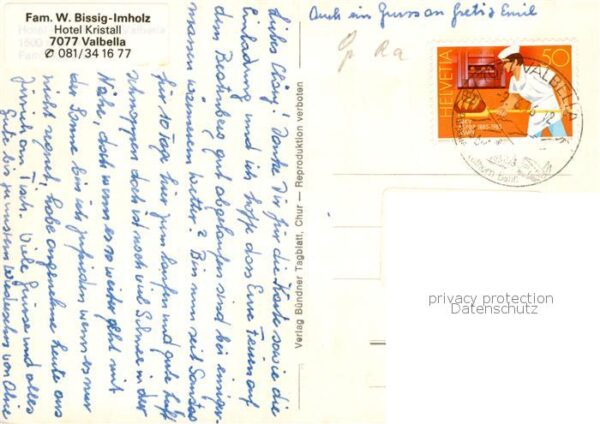 Fam. W. Bissig-Imholz
Hotel Kristall
7077 Valbella
✆ 081/34 16 77
Auch ein Gruss an Emil
Danke Dir für die Karte sowie die
Einladung und ich hoffe dass Eure Feuer auf
dem gut abgelaufen sind bei einiger-
massen wärmerem Wetter? Bin nun seit Samstag
für 10 Tage hier zum laufen und gute Luft
schnappen doch ist noch viel Schnee in der
Nähe, doch wenn es so weiter geht mit
der Sonne bin ich zufrieden wenn es nur
nicht regnet, habe angenehme Leute aus
Zürich am Tisch. Viele Grüsse und alles
Gute bis zu unserem Wiedersehen von Alice
Verlag Bündner Tagblatt, Chur — Reproduktion verboten
HELVETIA
50
VALBELLA
privacy protection
Datenschutz